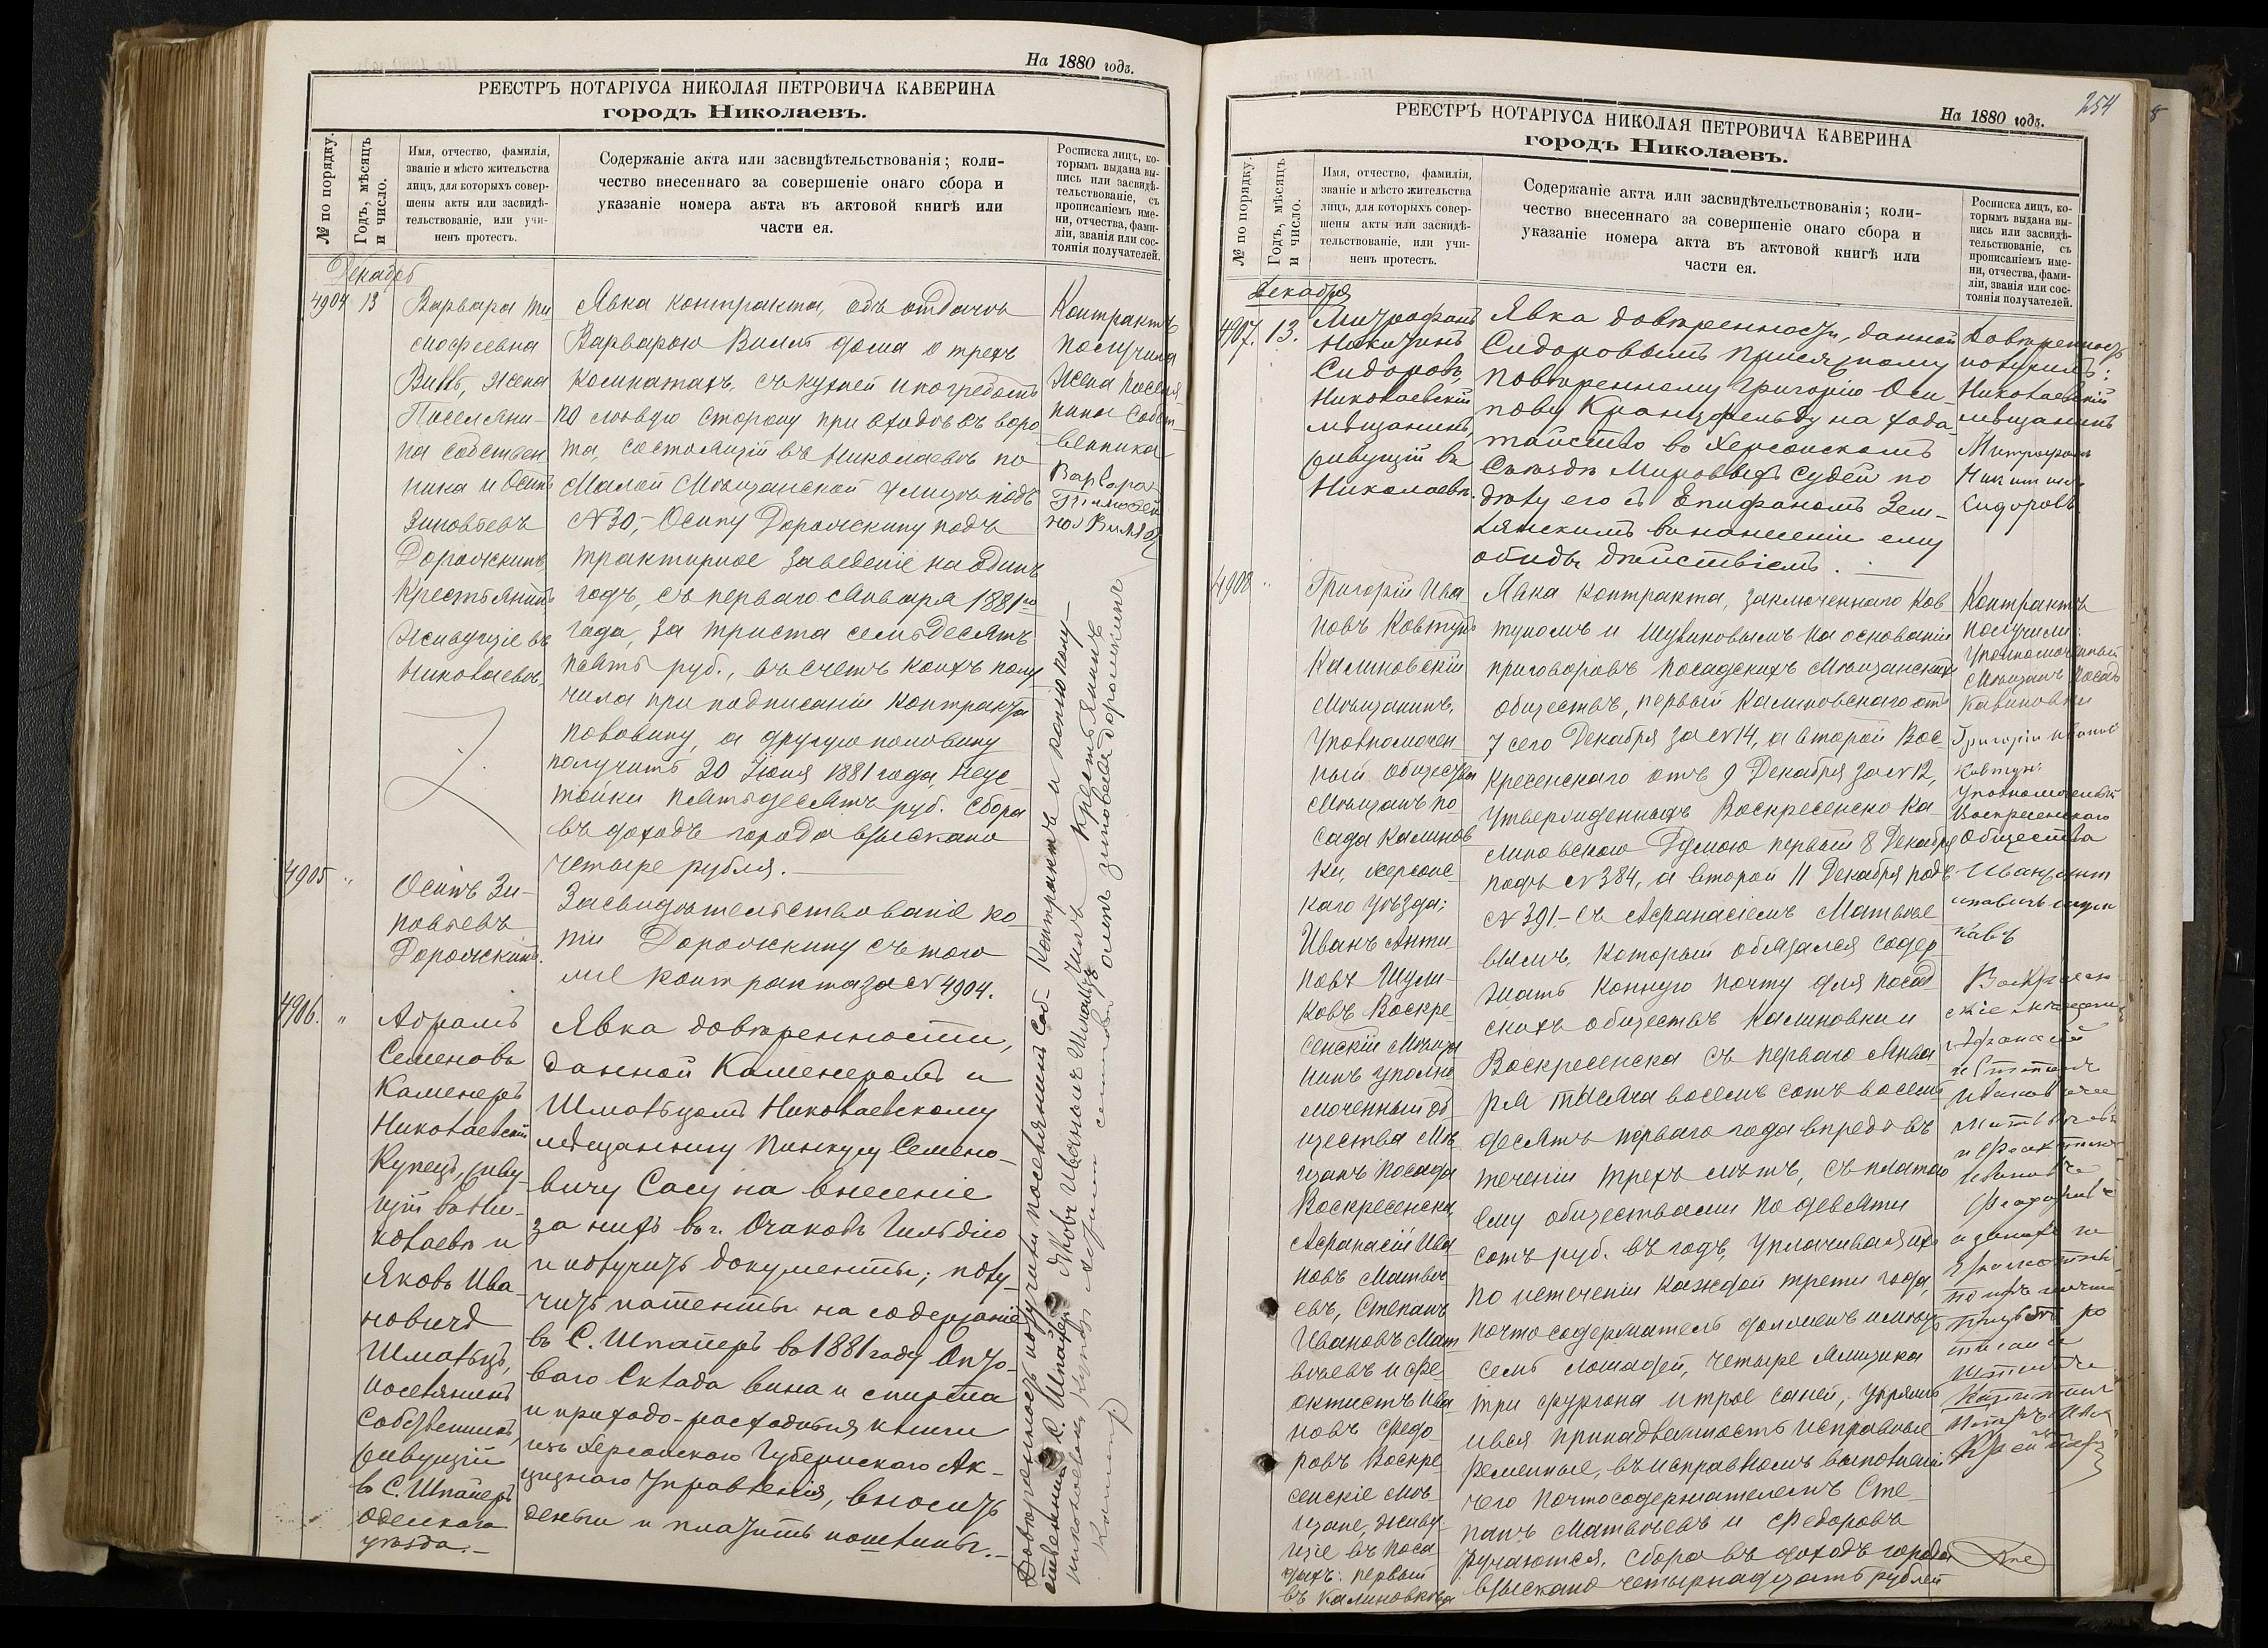 На 1880 годъ.
РЕЕСТРЪ НОТАРІУСА НИКОЛАЯ ПЕТРОВИЧА КАВЕРИНА
городъ Николаевъ.
№ по порядку.
Годъ, мѣсяцъ
и число.
Имя, отчество, фамилія,
званіе и мѣсто жительства
лицъ, для которыхъ совер-
шены акты или засвидѣ-
тельствованіе, или учи-
ненъ протестъ.
Содержаніе акта или засвидѣтельствованія; коли-
чество внесеннаго за совершеніе онаго сбора и
указаніе номера акта въ актовой книгѣ или
части ея.
Росписка лицъ, ко-
торымъ выдана вы-
пись или засвидѣ-
тельствованіе, съ
прописаніемъ име-
ни, отчества, фами-
ліи, званія или сос-
тоянія получателей.
Декабрь
4904 13
Варвара Ти
мофеевна
Вилль, жена
Поселяни-
на собствен
ника и Осипъ
Зиновьевъ
Доромскинъ
Крестьянинъ
живущіе въ
Николаевѣ.
Явка контракта, объ отдачѣ
Варварою Вилль дома о трехъ
комнатахъ, съ кухней и погребомъ
по лѣвую сторону при входѣ въ воро
та, состоящій въ Николаевѣ по
Малой Мѣщанской улицѣ подъ
№ 30,- Осипу Доромскину подъ
трактирное заведеніе на одинъ
годъ, съ перваго Января 1881 го
года, за триста семьдесятъ
пять руб., въ счетъ коихъ полу
чила при подписаніи контракта
половину, а другую половину
получитъ 20 Іюня 1881 года, Неус
тойки пятьдесятъ руб. Сбора
въ доходъ города взыскано
четыре рубля.-
Контрактъ
получила
жена посел
нина собст-
венника
Варвара
Тимофей
на Вилль
4905 "
Осипъ Зи-
новьевъ
Доромскинъ.
Засвидѣтельствованіе ко
піи Доромскину съ того
же контракта за № 4904.
Контрактъ и копію получилъ крестьянинъ
Осипъ Зиновьевъ Доромскинъ
4906. "
Абрамъ
Семеновъ
Каменеръ
Николаевскій
Купецъ, живу-
щій въ Ни-
колаевѣ и
Яковъ Ива
новичъ
Шмальцъ,
поселянинъ
собственникъ,
живущій
въ С. Шпаперъ
Одесскаго
уѣзда.-
Явка довѣренности,
данной Каменеромъ и
Шмальцомъ Николаевскому
мѣщанину Пинкусу Семено-
вичу Сасу на внесеніе
за нихъ въ г. Очаковъ Гильдію
и получить документы; полу-
чить патенты на содержаніе
въ С. Шпаперъ въ 1881 году Опто-
ваго Склада вина и спирта
и приходо-расходныя книги
изъ Херсонскаго Губернскаго Ак-
цизнаго Управленія, вносить
деньги и платить пошлины.-
Довѣренность получили поселянинъ соб-
ственникъ С. Шпаперъ Яковъ Ивановъ Шмальцъ
николаевскій купецъ
254
На 1880 годъ.
РЕЕСТРЪ НОТАРІУСА НИКОЛАЯ ПЕТРОВИЧА КАВЕРИНА
городъ Николаевъ.
№ по порядку.
Годъ, мѣсяцъ
и число.
Имя, отчество, фамилія,
званіе и мѣсто жительства
лицъ, для которыхъ совер-
шены акты или засвидѣ-
тельствованіе, или учи-
ненъ протестъ.
Содержаніе акта или засвидѣтельствованія; коли-
чество внесеннаго за совершеніе онаго сбора и
указаніе номера акта въ актовой книгѣ или
части ея.
Росписка лицъ, ко-
торымъ выдана вы-
пись или засвидѣ-
тельствованіе, съ
прописаніемъ име-
ни, отчества, фами-
ліи, званія или сос-
тоянія получателей.
Декабря
4907. 13.
Митрофанъ
Никитинъ
Сидоровъ,
Николаевскій
мѣщанинъ,
живущій въ
Николаевѣ.
Явка довѣренности, данной
Сидоровымъ присяжному
повѣренному Григорію Оси-
пову Кранцфельду на хода-
тайство въ Херсонскомъ
Съѣздѣ Мировыхъ Судей по
дѣлу его съ Епифаномъ Зем-
лянскимъ въ нанесеніи ему
обиды дѣйствіемъ.
Довѣренность
получилъ:
Николаевскій
мѣщанинъ
Митрофанъ
Никитинъ
Сидоровъ
4908 "
Григорій Ива
новъ Ковтунъ
Калиновскій
Мѣщанинъ,
Уполномочен-
ный общества
Мѣщанъ по
сада Калинов
ки, Херсонс-
каго уѣзда;
Иванъ Анти-
повъ Шули-
ковъ Воскре
сенскій Мѣща
нинъ уполно
моченный об
щества Мѣ
щанъ посада
Воскресенска
Афанасій Ива
новъ Матвѣ
евъ, Степанъ
Ивановъ Мат
вѣевъ и Фе
октистъ Ива
новъ Федо
ровъ Воскре
сенскіе Мѣ-
щане, живу-
щіе въ поса
дахъ: первый
въ Калиновкѣ, а
Явка контракта, заключеннаго Ков
туномъ и Шуликовымъ на основаніи
приговоровъ посадскихъ Мѣщанскихъ
обществъ, первый Калиновскаго отъ
7 сего Декабря за № 14, а второй Вос-
кресенскаго отъ 9 Декабря за № 12,
Утвержденныхъ Воскресенско Ка-
линовскою Думою первый 8 Декабря
подъ № 384, а второй 11 Декабря подъ
№ 391 - съ Афанасіемъ Матвѣе
вымъ, который обязался содер
жать конную почту для посад
скихъ обществъ Калиновки и
Воскресенска съ перваго Янва
ря тысяча восемь сотъ восемь
десятъ перваго года впредь въ
теченіи трехъ лѣтъ, съ платою
ему обществами по девяти
сотъ руб. въ годъ, уплачивая ихъ
по истеченіи каждой трети года,
почтосодержатель долженъ имѣть
семь лошадей, четыре ямщика
три фургона и трое саней, упряжь
и вся принадлежность исправныя
ременные, въ исправномъ выполненіи
чего почтосодержателемъ Сте-
панъ Матвѣевъ и Федоровъ
ручаются. Сбора въ доходъ города
взыскано четырнадцать рублей
Контрактъ
получили:
Уполномоченный
Мѣщанъ посада
Калиновки
Григорій Ивановъ
Ковтунъ
Уполномоченный
Воскресенскаго
Общества
Иванъ Ант